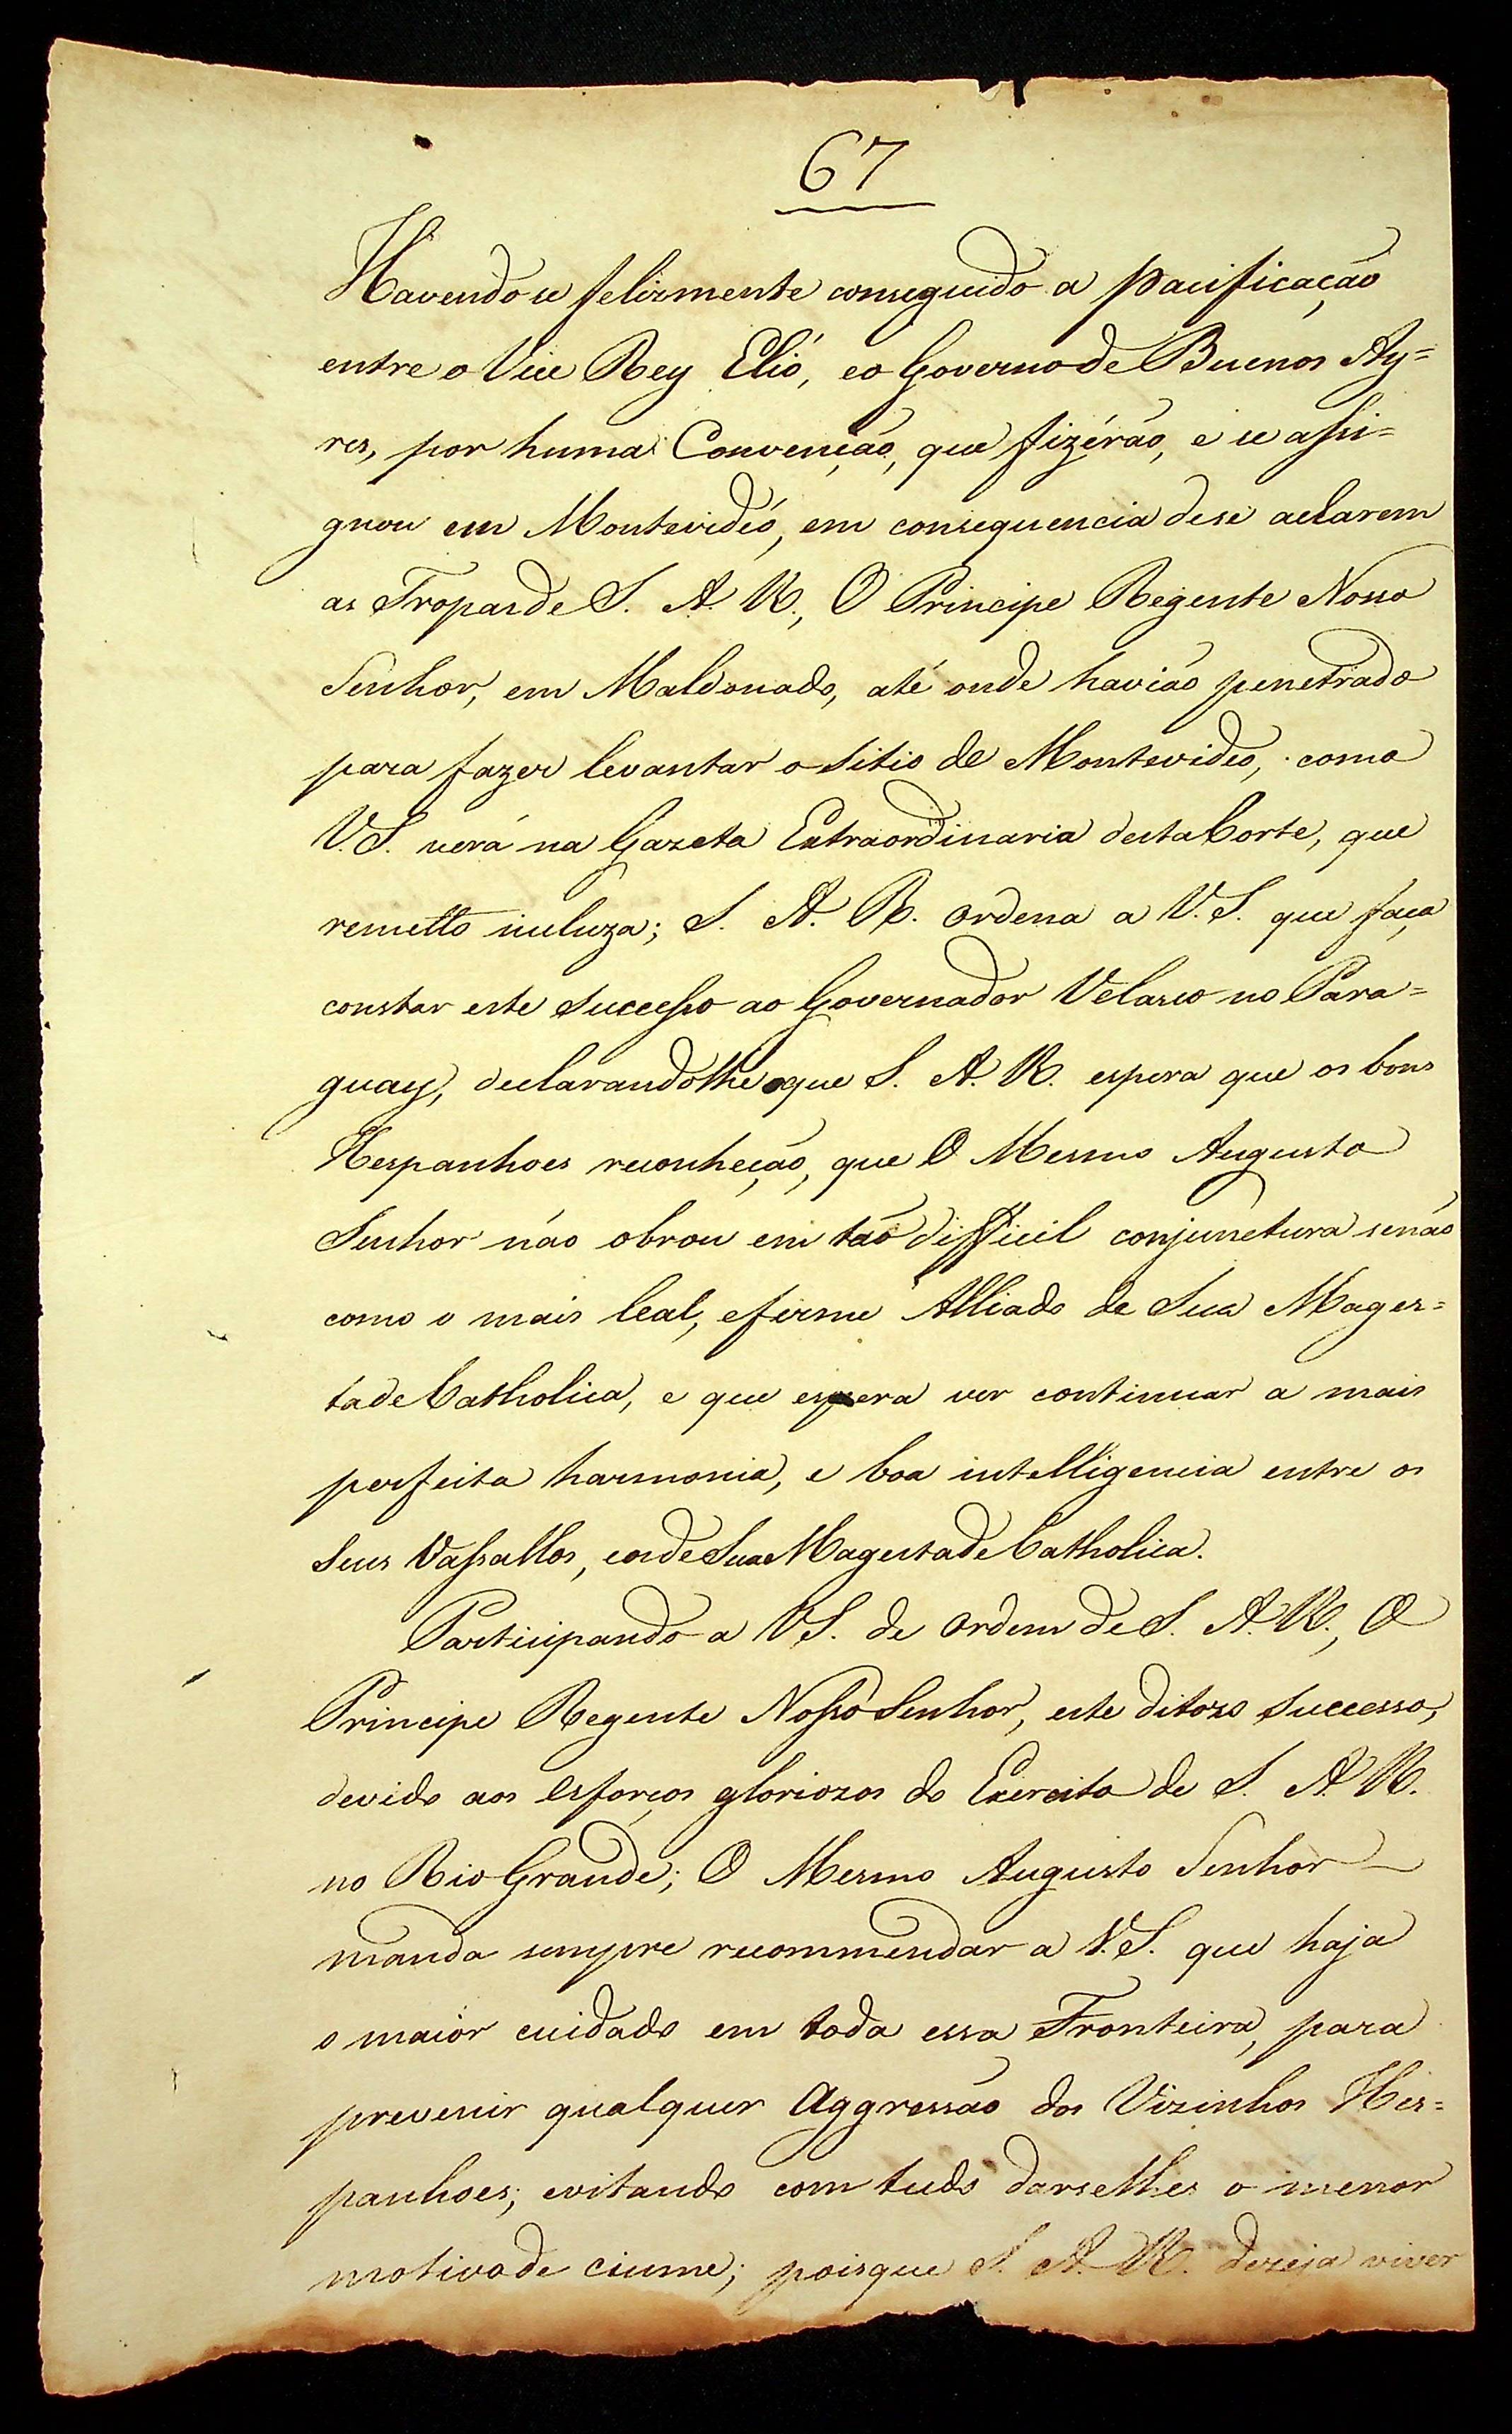 67
Havendose felizmente conseguido a pacificação
entre o Vice Rey Elió, eo Governo de Buenos Ay=
res, por huma Convenção, que fizérão, e se assi=
gnou em Montevidéo, em consequencia dese acharem
as Tropas de S. A. R., O Principe Regente Nosso
Senhor, em Maldonado, até onde havião penetrado
para fazer levantar o Sitio de Montevideo, como
V.S. verá na Gazeta Extraordinaria desta Corte, que
remetto incluza; S. A. R. ordena a V.S. que faça
constar este Successo ao Governador Velasco no Para=
guay, declarandolhe que S. A. R. espera que os bons
Hespanhoes reconheção, que O Mesmo Augusto
Senhor não obrou em tão difficil conjunctura senão
como o mais leal, efirme Alliado de Sua Mages=
tade Catholica, e que espera ver continuar a mais
perfeita harmonia, e boa intelligencia entre os
Seus Vassallos, eosde Sua Magestade Catholica.
Participando a VS. de ordem de S. A. R., O
Principe Regente Nosso Senhor, este ditozo Successo,
devido aos esforços gloriozos do Exercito de S. A. R.
no Rio Grande; O Mesmo Augusto Senhor
manda sempre recommendar a V.S. que haja
o maior cuidado em toda essa Fronteira, para
prevenir qualquer Aggressão dos Vizinhos Hes=
panhoes; evitando com tudo darselhes o menor
motivo de ciume; poisque S. A. R. dezeja viver